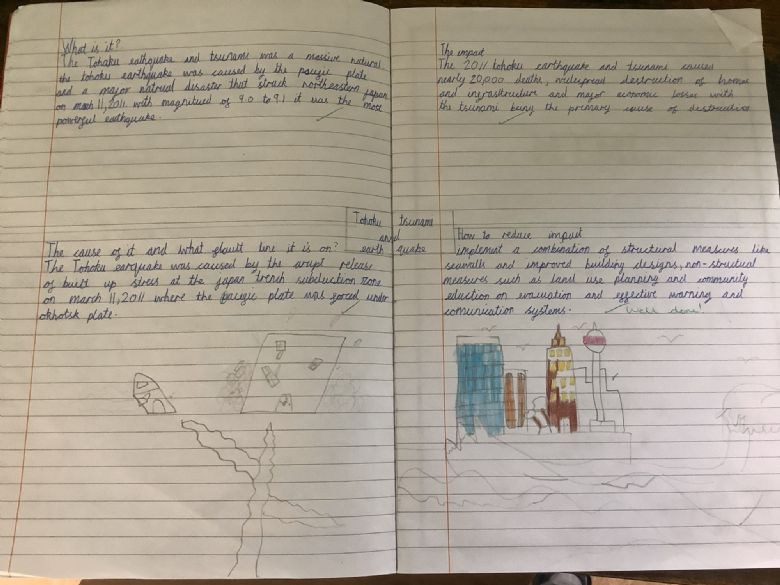 What is it?
The Tohoku eathquake and tsunami was a massive natural
the tohoku earthquake was caused by the pacific plate
and a major natrual disaster that struck northeastern japan
on march 11, 2011 with magnitued of 9.0 to 9.1 it was the most
powerful eathquake.
The cause of it and what fault line it is on?
The Tohoku earquake was caused by the arupt release
of built up stress at the japan trench subduction zone
on march 11, 2011 where the pacific plate was forced under
okhotsk plate.
Tohoku tsunami
and
earth quake
The impact
The 2011 tohoku earthquake and tsunami caused
nearly 20,000 deaths, widespread destruction of homes
and infrastructure and major economic losses with
the tsunami being the primary cause of destruction
How to reduce impact
implement a combination of structural measures like
seawalls and improved building designs, non-structual
measures such as land use planning and community
eduction on evacuation and effective warning and
comunication systems.
Well done!